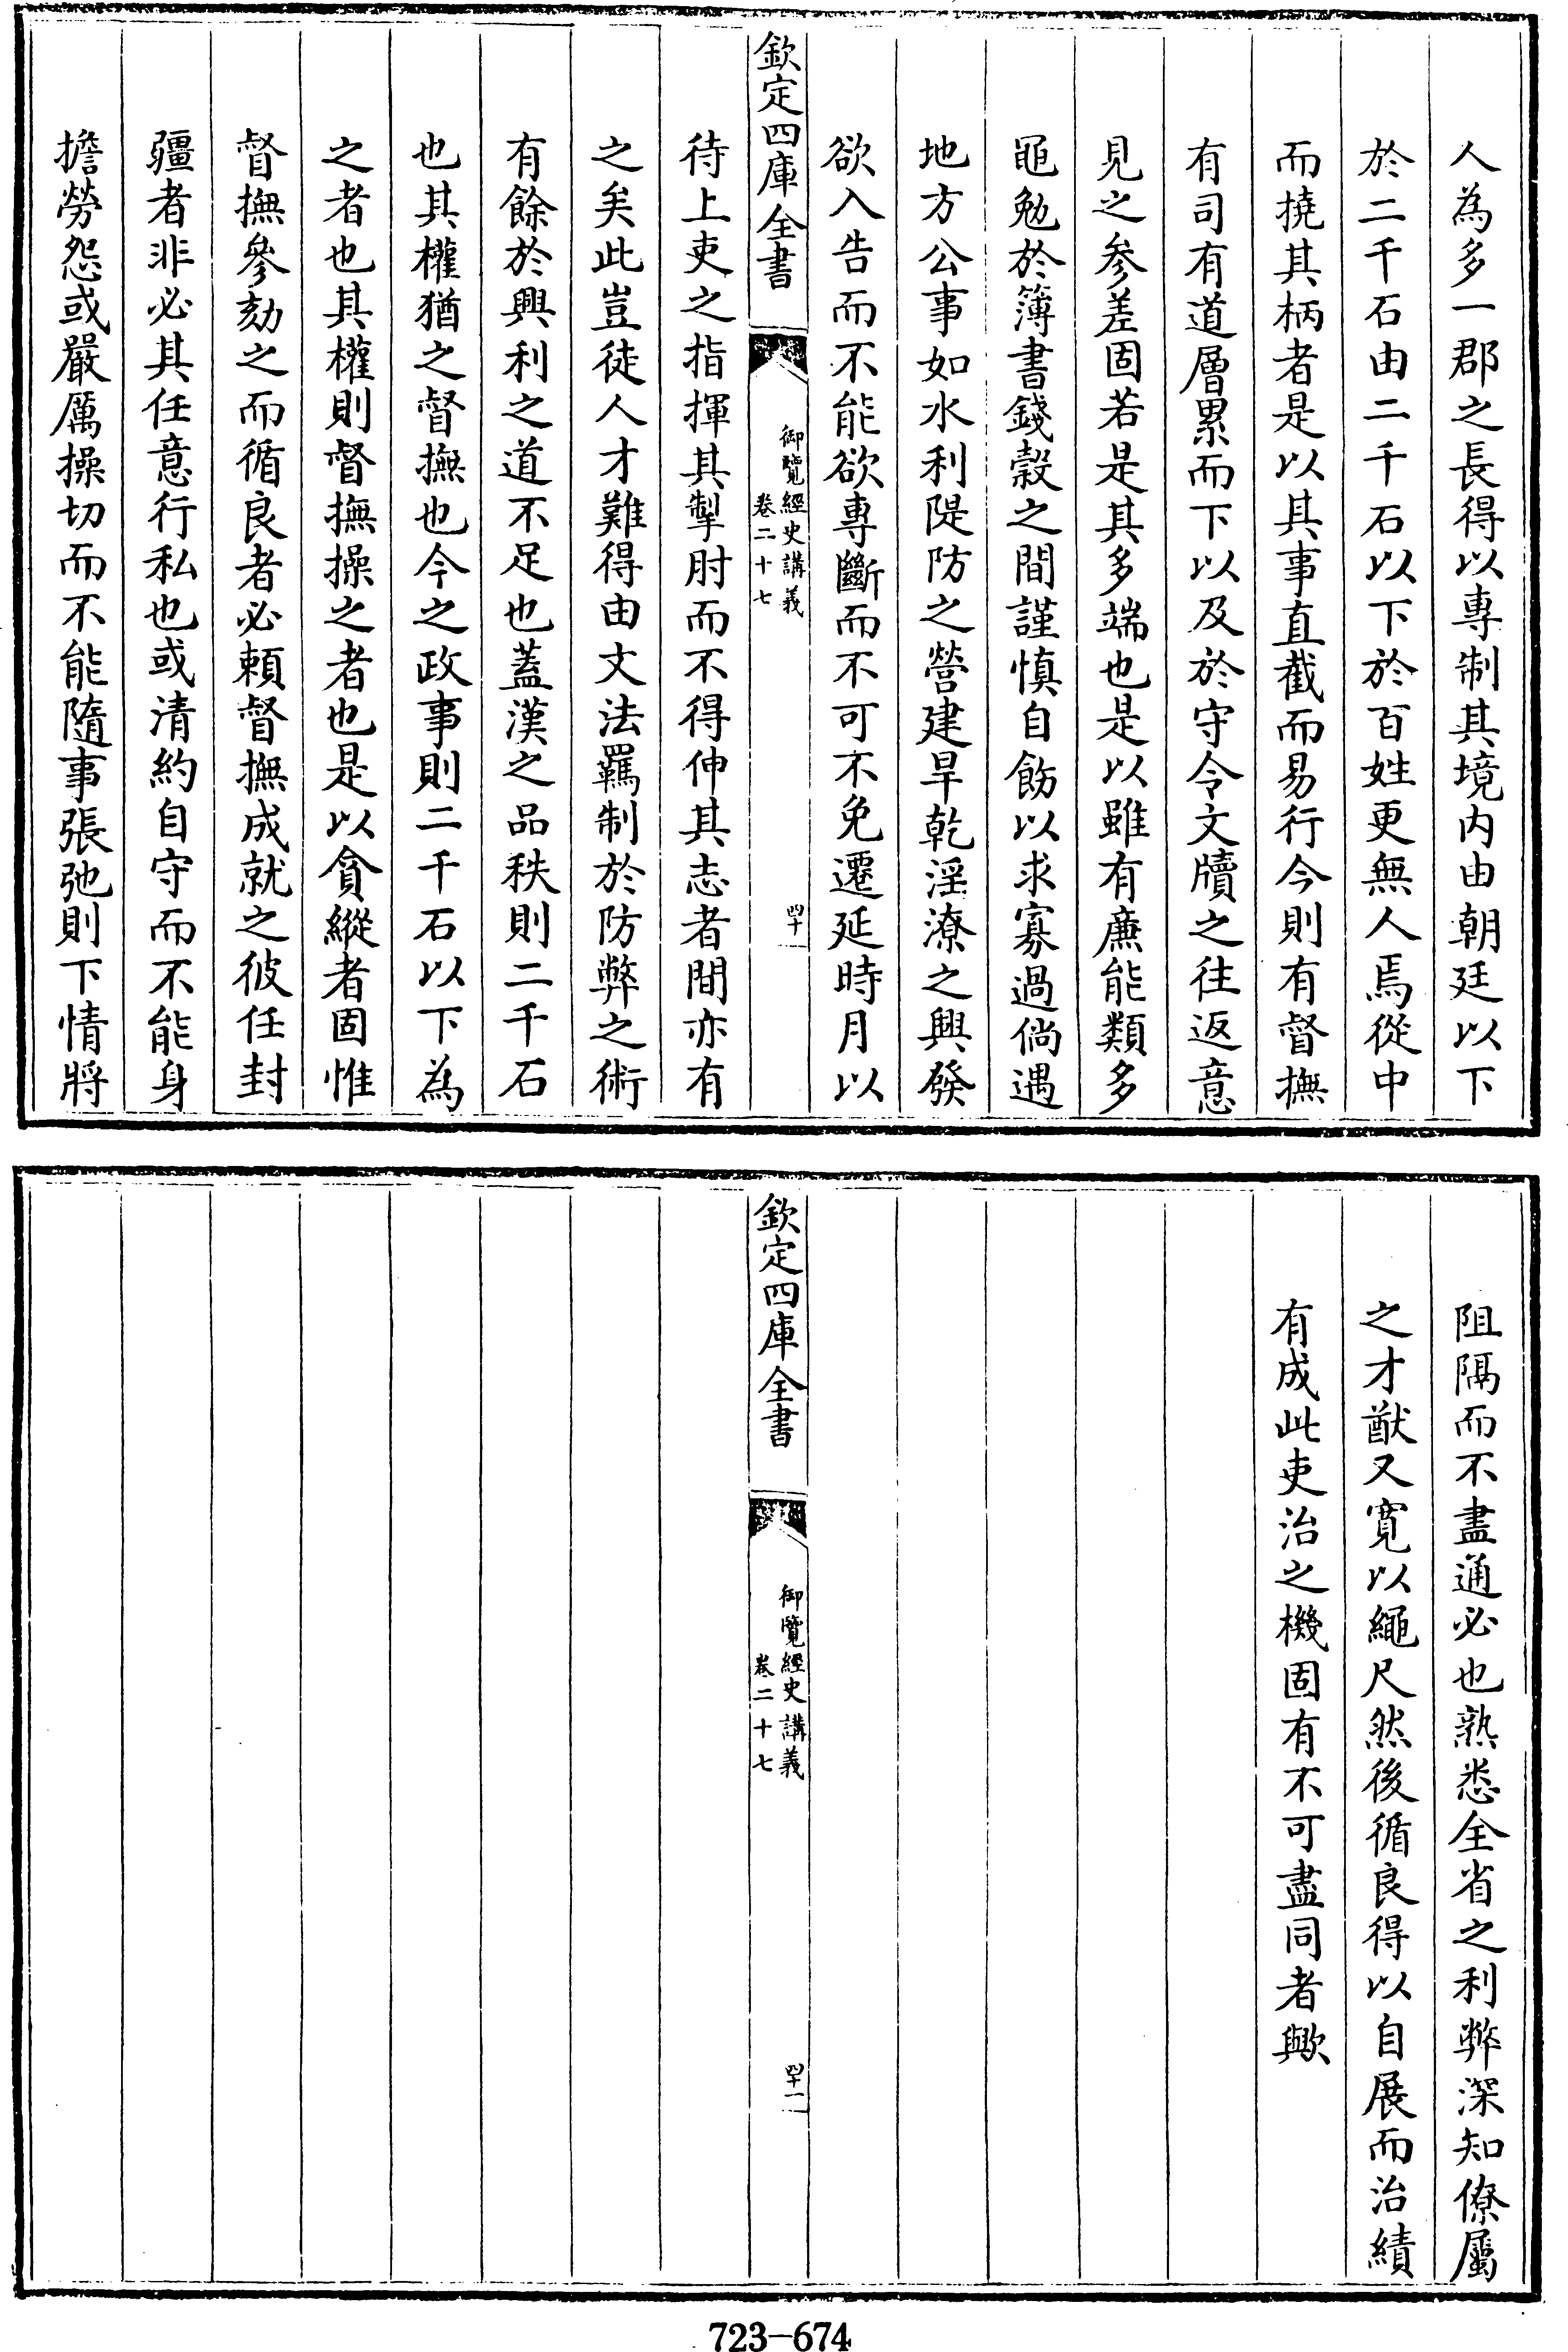 人為多一郡之長得以專制其境内由朝廷以下
於二千石由二千石以下於百姓更無人焉從中
而撓其柄者是以其事直截而易行今則有督撫
有司有道層累而下以及於守令文牘之往返意
見之参差固若是其多端也是以雖有廉能類多
黽勉於簿書錢穀之間謹慎自飭以求寡過倘遇
地方公事如水利隄防之營建旱乾淫潦之興發
欲入告而不能欲專斷而不可不免遷延時月以
欽定四庫全書
御覽經史講義
卷二十七
四十
待上吏之指揮其掣肘而不得伸其志者間亦有
之矣此豈徒人才難得由文法羈制於防弊之術
有餘於興利之道不足也蓋漢之品秩則二千石
也其權猶之督撫也今之政事則二千石以下為
之者也其權則督撫操之者也是以貪縱者固惟
督撫參劾之而循良者必賴督撫成就之彼任封
疆者非必其任意行私也或清約自守而不能身
擔勞怨或嚴厲操切而不能隨事張弛則下情將
阻隔而不盡通必也熟悉全省之利弊深知僚屬
之才猷又寛以繩尺然後循良得以自展而治績
有成此吏治之機固有不可盡同者歟
欽定四庫全書
御覽經史講義
卷二十七
四十一
723-674